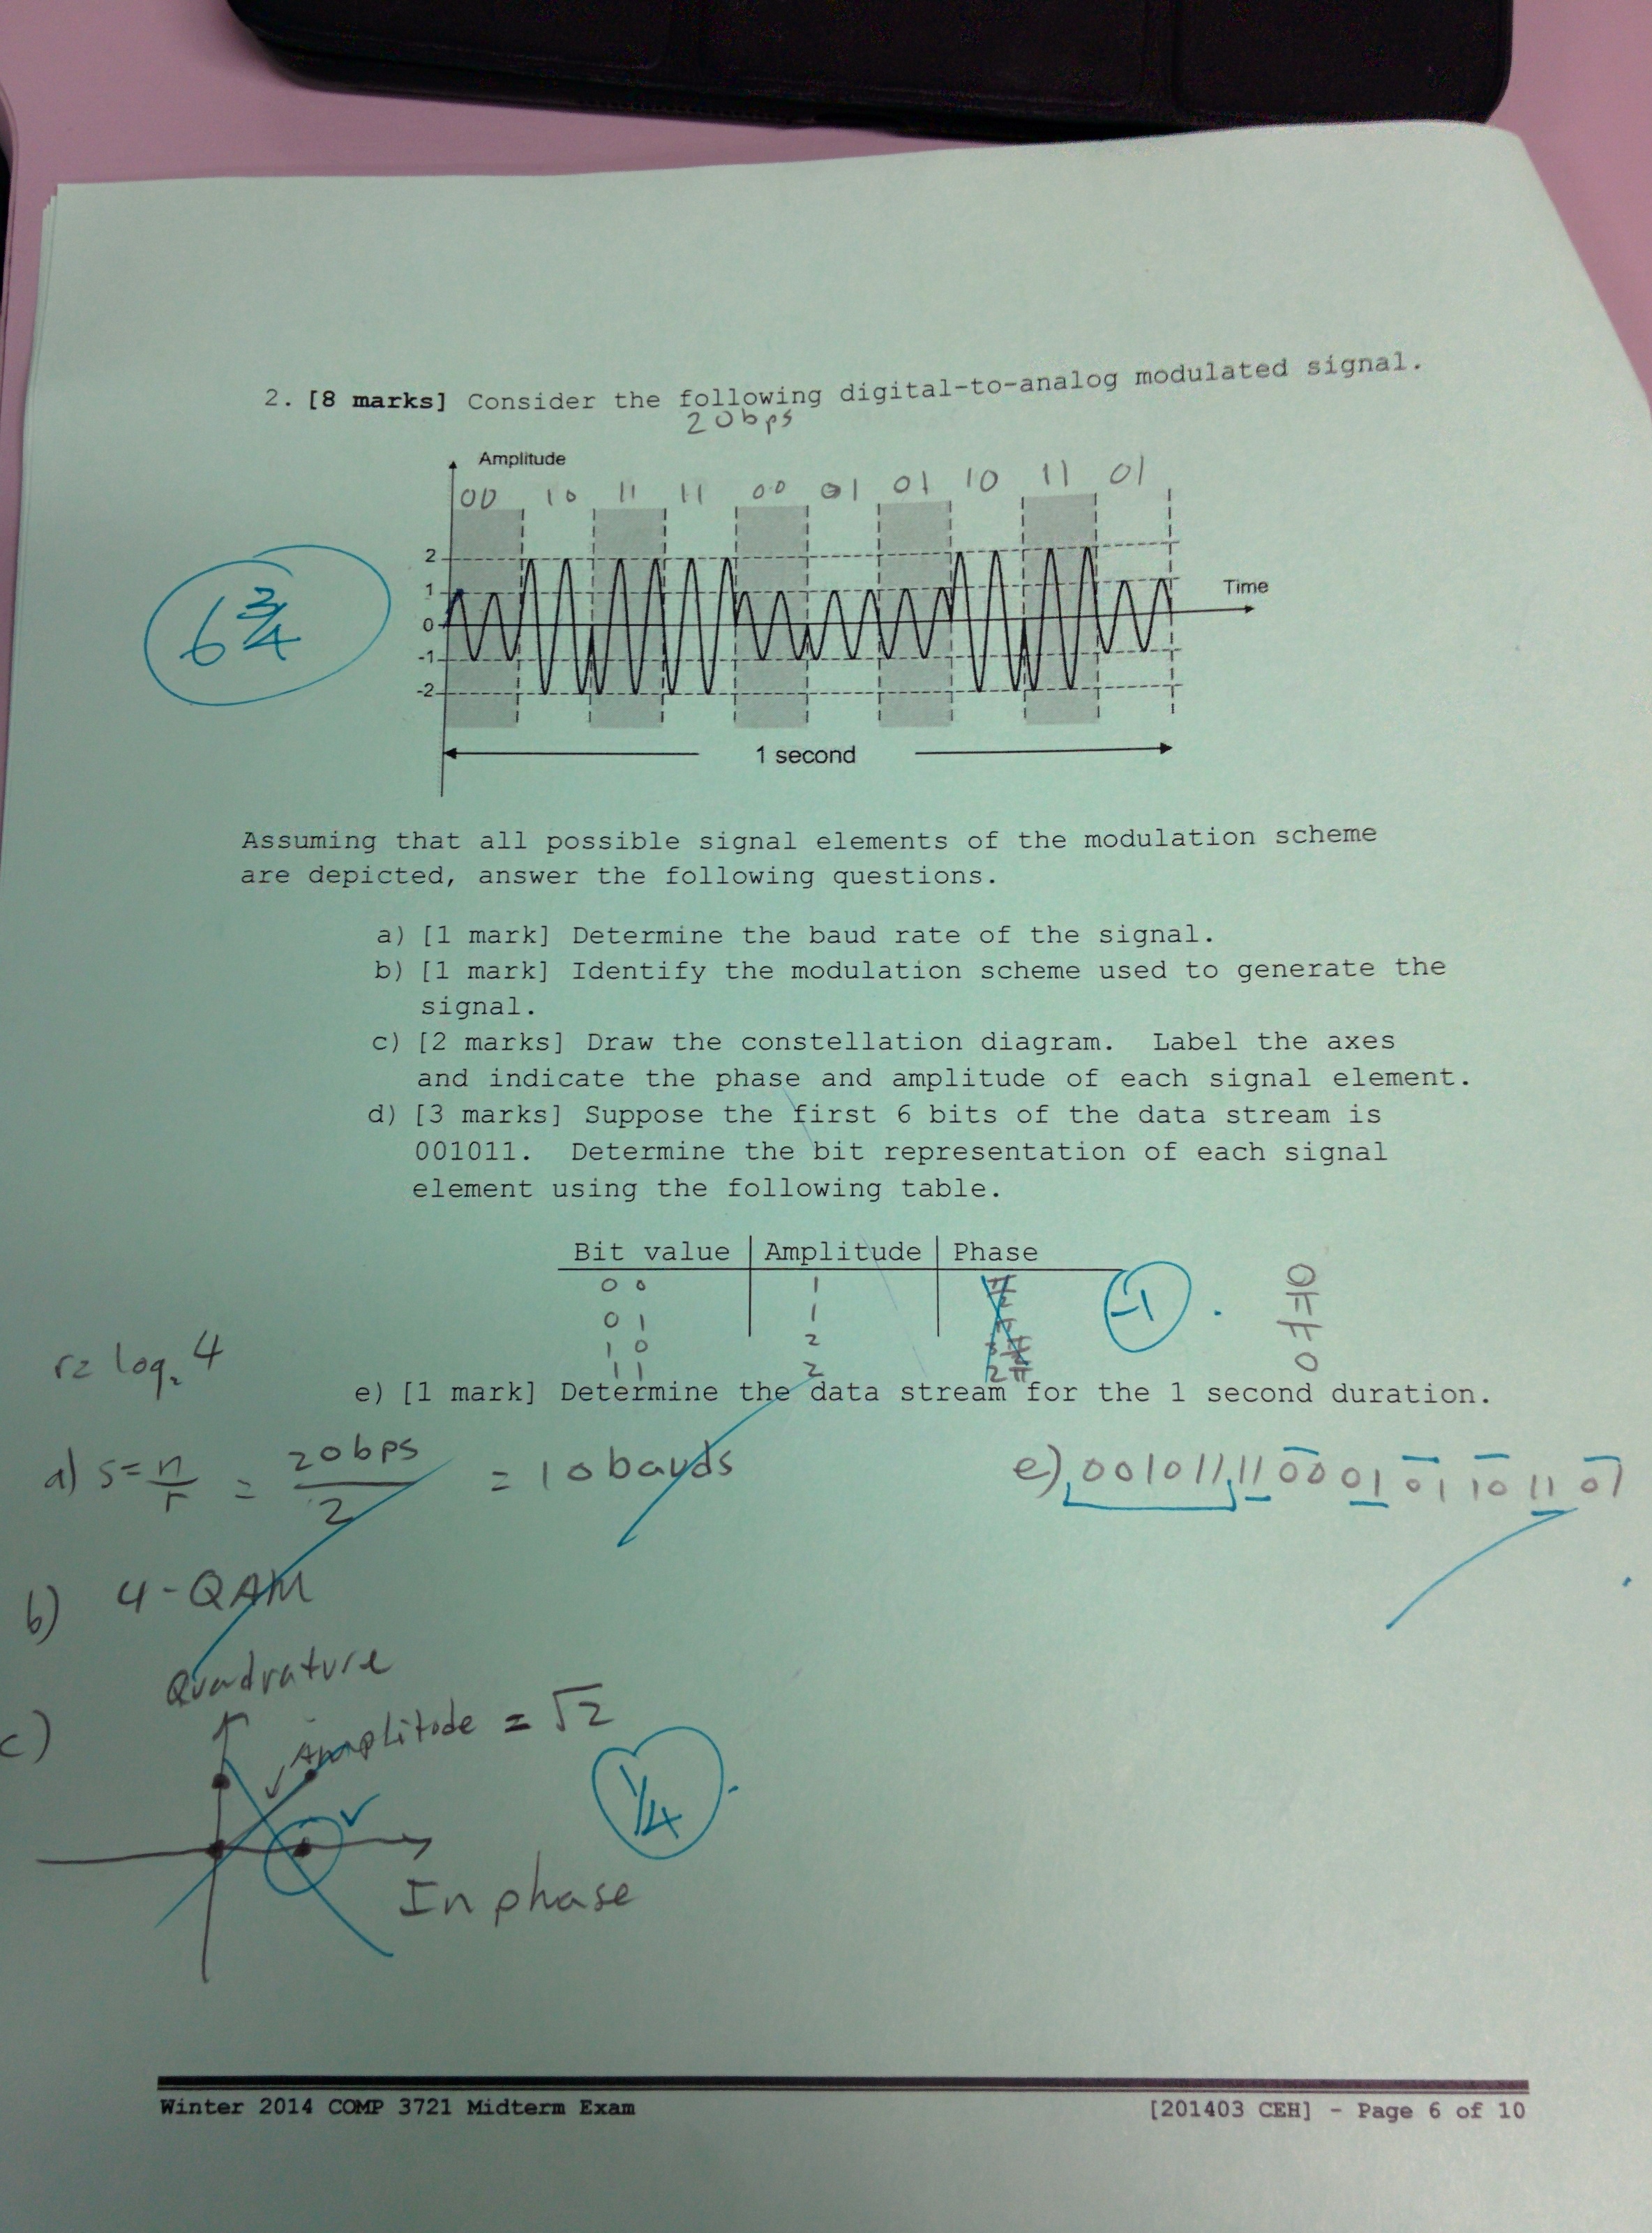 2. [8 marks] Consider the following digital-to-analog modulated signal.
20bps
Amplitude
00 10 11 11 00 01 01 10 11 01
2
1
0
-1
-2
Time
1 second
6 3/4
Assuming that all possible signal elements of the modulation scheme
are depicted, answer the following questions.
a) [1 mark] Determine the baud rate of the signal.
b) [1 mark] Identify the modulation scheme used to generate the
signal.
c) [2 marks] Draw the constellation diagram. Label the axes
and indicate the phase and amplitude of each signal element.
d) [3 marks] Suppose the first 6 bits of the data stream is
001011. Determine the bit representation of each signal
element using the following table.
Bit value Amplitude Phase
00 1 π/2
01 1 π
10 2 3π/2
11 2 2π
-1
0 π π 0
r= log₂ 4
e) [1 mark] Determine the data stream for the 1 second duration.
a) s = n/r = 20bps/2 = 10 bauds
e) 00101111000101101101
b) 4-QAM
c)
Quadrature
Amplitude = √2
1/4
In phase
Winter 2014 COMP 3721 Midterm Exam [201403 CEH] - Page 6 of 10